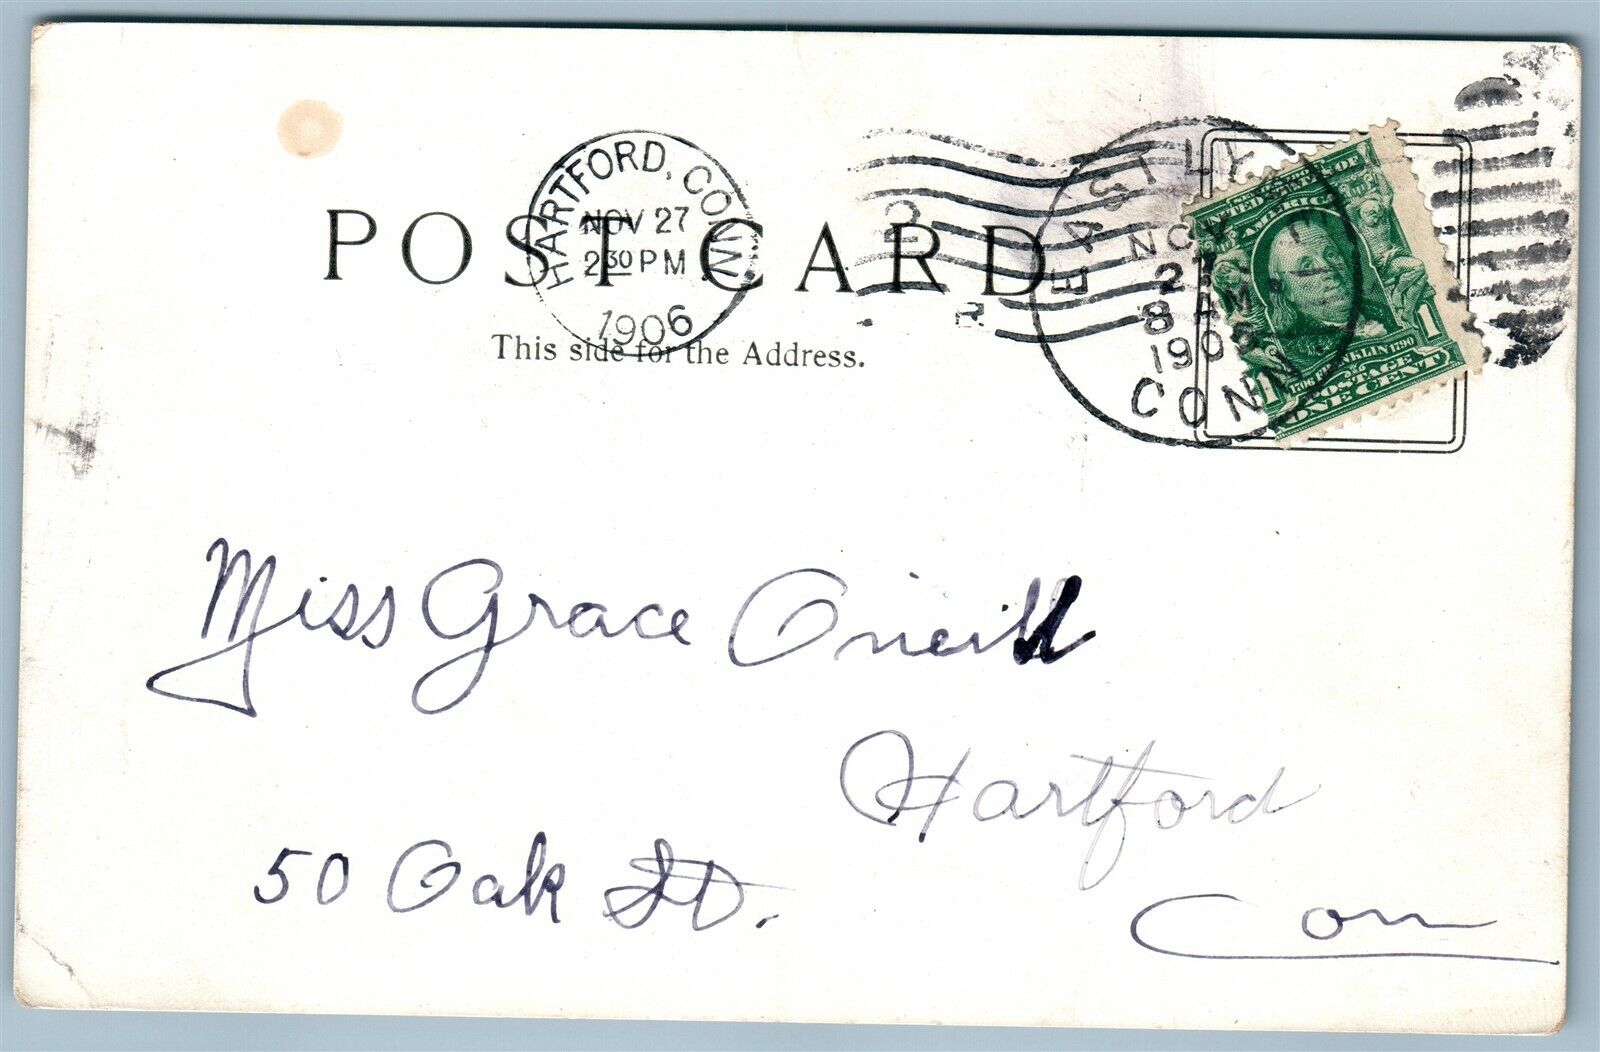 HARTFORD, CONN.
NOV 27
2 30 PM
1906
2
R
EAST LYME
NOV
27
8 AM
1906
CONN.
SERIES 1902
UNITED STATES OF
AMERICA
1706 FRANKLIN 1790
1 POSTAGE 1
ONE CENT
POST CARD
This side for the Address.
Miss Grace Oneill
Hartford
50 Oak St.
Conn